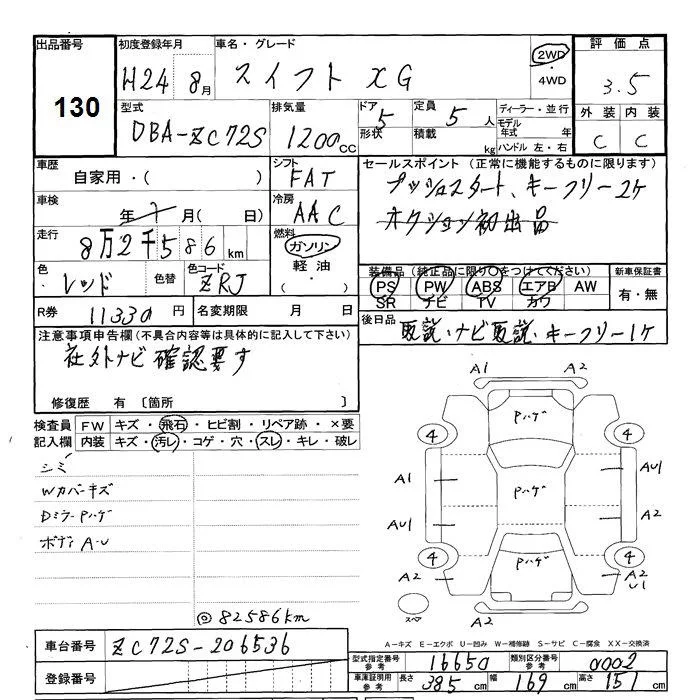 出品番号
130
初度登録年月
H24 8月
車名・グレード
スイフト XG
2WD
・
4WD
評価点
3.5
型式
DBA-ZC72S
排気量
1200cc
ドア
5
形状
定員
5人
積載
kg
ディーラー・並行
モデル
年式 年
ハンドル 左・右
外装 内装
C C
車歴
自家用・( )
シフト
FAT
セールスポイント (正常に機能するものに限ります)
プッシュスタート、キーフリー2ケ
オクション初出品
車検
年 月( 日)
冷房
AAC
走行
8万2千586km
燃料
ガソリン
軽油・
( ・ )
色
レッド
色替
色コード
ZRJ
装備品(純正品に限り○をつけてください)
PS PW ABS エアB AW
SR ナビ TV カワ
新車保証書
有・無
R券 11330円
名変期限 月 日
後日品
取説・ナビ取説・キーフリー1ケ
注意事項申告欄(不具合内容等は具体的に記入して下さい)
社外ナビ確認要す
修復歴 有〔箇所 〕
検査員
記入欄
FW キズ・飛石・ヒビ割・リペア跡・×要
内装 キズ・汚レ・コゲ・穴・スレ・キレ・破レ
シミ
Wカバーキズ
Dミラーpハゲ
ボディA-U
◎82586km
A1 A2
Pハゲ
4 4
A1 Pハゲ AU1
AU1 A2
4 Pハゲ 4
A2 A2
U1
A1 A2
スペア
A-キズ E-エクボ U-凹み W-補修跡 S-サビ C-腐食 XX-交換済
車台番号 ZC72S-206536
登録番号
型式指定番号
参考
16650
類別区分番号
参考
0002
車庫証明用
参考
長さ 385cm 幅 169cm 高さ 151cm